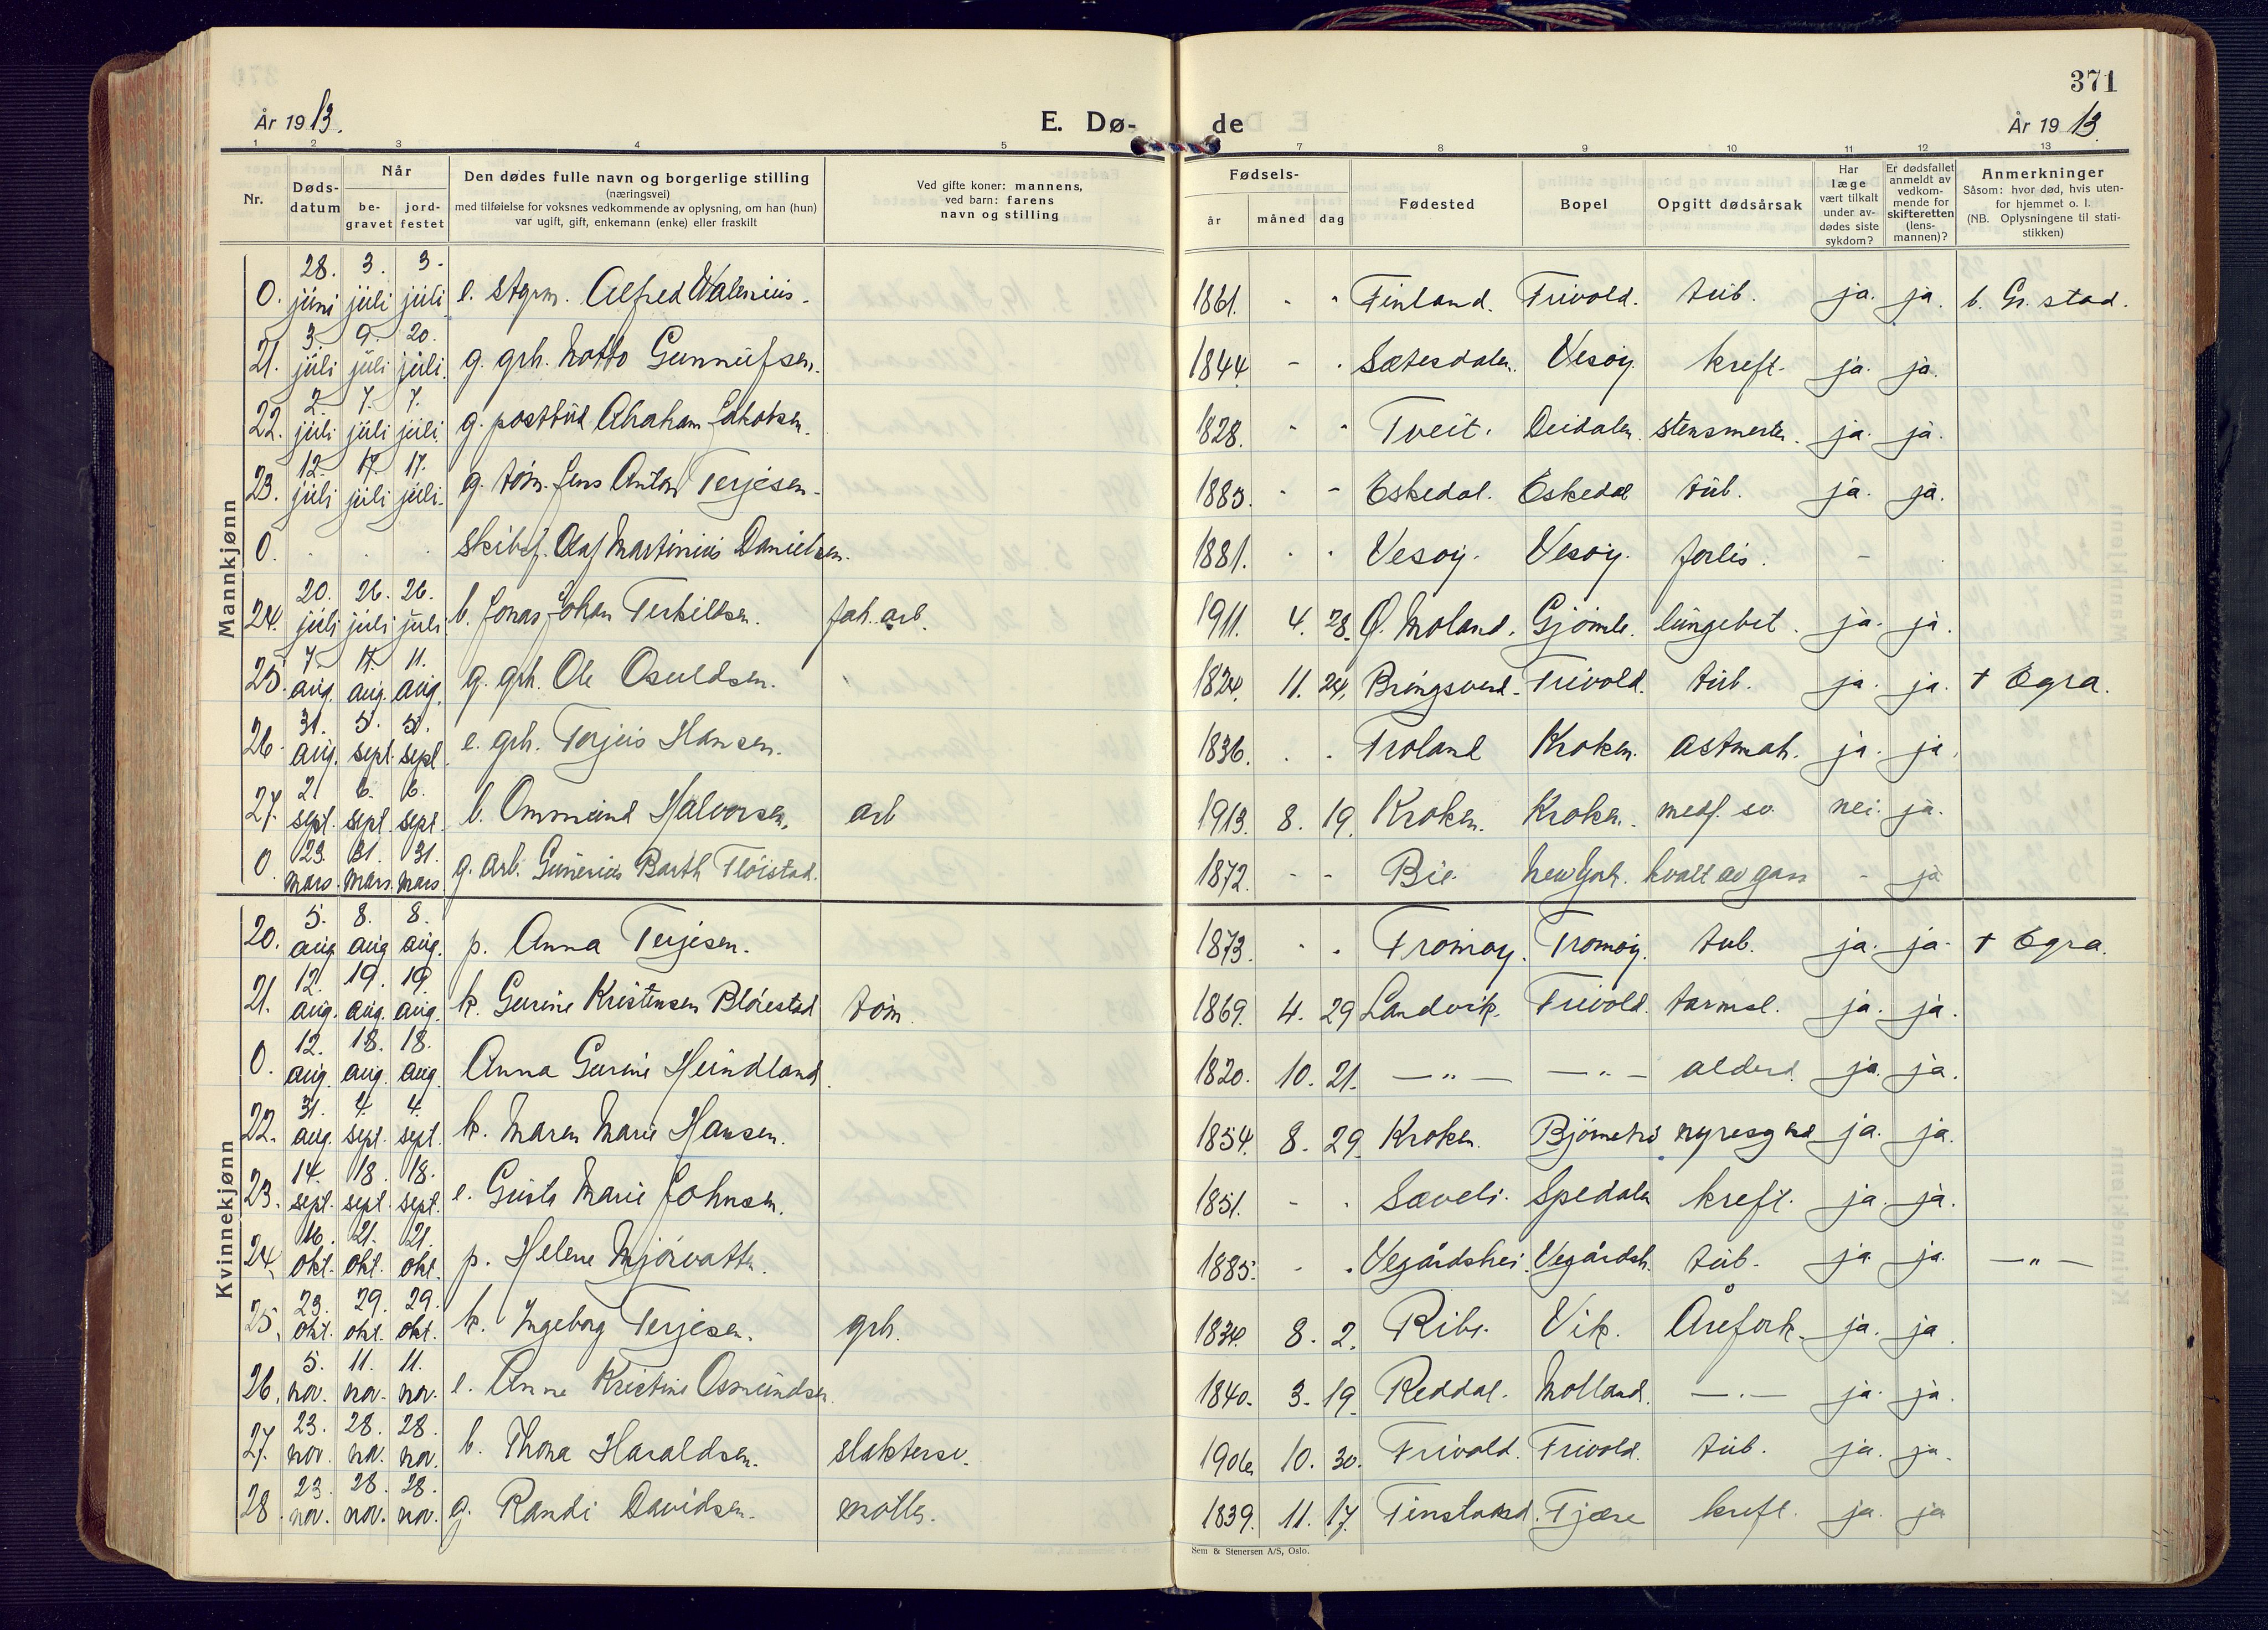 371
År 1913.
E. Dø- de
År 1913
1 2 3 4 5 7 8 9 10 11 12 13
Nr.
Døds-
datum
Når
be-
gravet
jord-
festet
Den dødes fulle navn og borgerlige stilling
(næringsvei)
med tilføielse for voksnes vedkommende av oplysning, om han (hun)
var ugift, gift, enkemann (enke) eller fraskilt
Ved gifte koner: mannens,
ved barn: farens
navn og stilling
Fødsels-
år måned dag
Fødested
Bopel
Opgitt dødsårsak
Har
læge
vært tilkalt
under av-
dødes siste
sykdom?
Er dødsfallet
anmeldt av
vedkom-
mende for
skifteretten
(lens-
mannen)?
Anmerkninger
Såsom: hvor død, hvis uten-
for hjemmet o. l.
(NB. Oplysningene til stati-
stikken)
Mannkjønn
0. 28. juni 3. juli 3. juli e. Alfred Valenius. 1861. - - Finland. Frivold. tub. ja. ja. b. Gr. stad.
21. 3. juli 9. juli 20. juli. g. grh. Notto Gunnufsen. 1844 - - Sætesdalen. Vesøy. kreft. ja. ja.
22. 2. juli 7. juli 7. juli g. postbud Abraham Jakobsen. 1828. - - Tveit. Deidalen. ja. ja.
23. 12. juli 17. juli 17. juli. g. tøm. Jens Anton Terjesen. 1883. - - Eskedal. Eskedal tub. ja. ja.
0. . . . skibsf. Olaf Martinius Danielsen. 1881. - - Vesøy. Vesøy. forlis. -
24. 20. juli 26. juli 26. juli b. Jonas Johan Terkildsen. fab. arb. 1911. 4. 28. Ø. Moland. Gjømle. lungebet. ja. ja.
25. 7. aug. 11. aug. 11. aug. g. grh. Ole Osuldsen. 1824. 11. 24. Bringsverd. Frivold. tub. ja. ja. + Egra.
26. 31. aug. 5. sept. 5. sept. e. grh. Terjeis Hansen. 1836. . . Froland Kroken. astmah. ja. ja.
27. 2. sept. 6. sept. 6. sept. b. Ommund Halvorsen, arb 1913. 8. 19. Kroken. Kroken. medf. sv. nei. ja.
0. 23. mars. 31. mars. 31. mars. g. arb. Gunerius Barth Fløistad. 1872. - - Bie. New York. kvalt av gass - ja
Kvinnekjønn
20. 5. aug. 8. aug 8. aug. p. Anna Terjesen. 1873. - - Tromøy. Tromøy. tub. ja. ja. + Egra.
21. 12. aug. 19. aug. 19. aug. k. Gurine Kristensen Bløiestad tøm. 1869. 4. 29 Landvik. Frivold. tarmsl. ja. ja.
0. 12. aug. 18. aug. 18. aug. Anna Gurine Heindland. 1820. 10. 21. —"— —"— alderd. ja. ja.
22. 31. aug. 4. sept. 4. sept. k. Maren Marie Hansen. 1854. 8. 29. Kroken. nyresygd ja. ja.
23. 14. sept. 18. sept. 18. sept. e. Guste Marie Johnsen. 1851. - . Sæveli. Spedalen kreft. ja. ja.
24. 16. okt. 21. okt. 21. okt. p. Helene Mjørvatten. 1885. - . Vegårdshei. Vegårdsh. tub. ja. ja. —"—
25. 23. okt. 29. okt. 29. okt. k. Ingeborg Terjesen. grh. 1834. 8. 2. Ribe. Vik. Årefork. ja. ja.
26. 5. nov. 11. nov. 11. nov. e. Anne Kristine Osmundsen. 1840. 3. 19. Reddal. Molland. —"— ja. ja.
27. 23. nov. 28. nov. 28. nov. b. Thora Haraldsen. slaktersv. 1906 10. 30. Frivold. Frivold. tub. ja. ja.
28. 23. nov. 28. nov. 28. nov. g. Randi Davidsen. møller. 1839. 11. 17. Finsland. Fjære kreft. ja. ja
Sem & Stenersen A/S, Oslo.